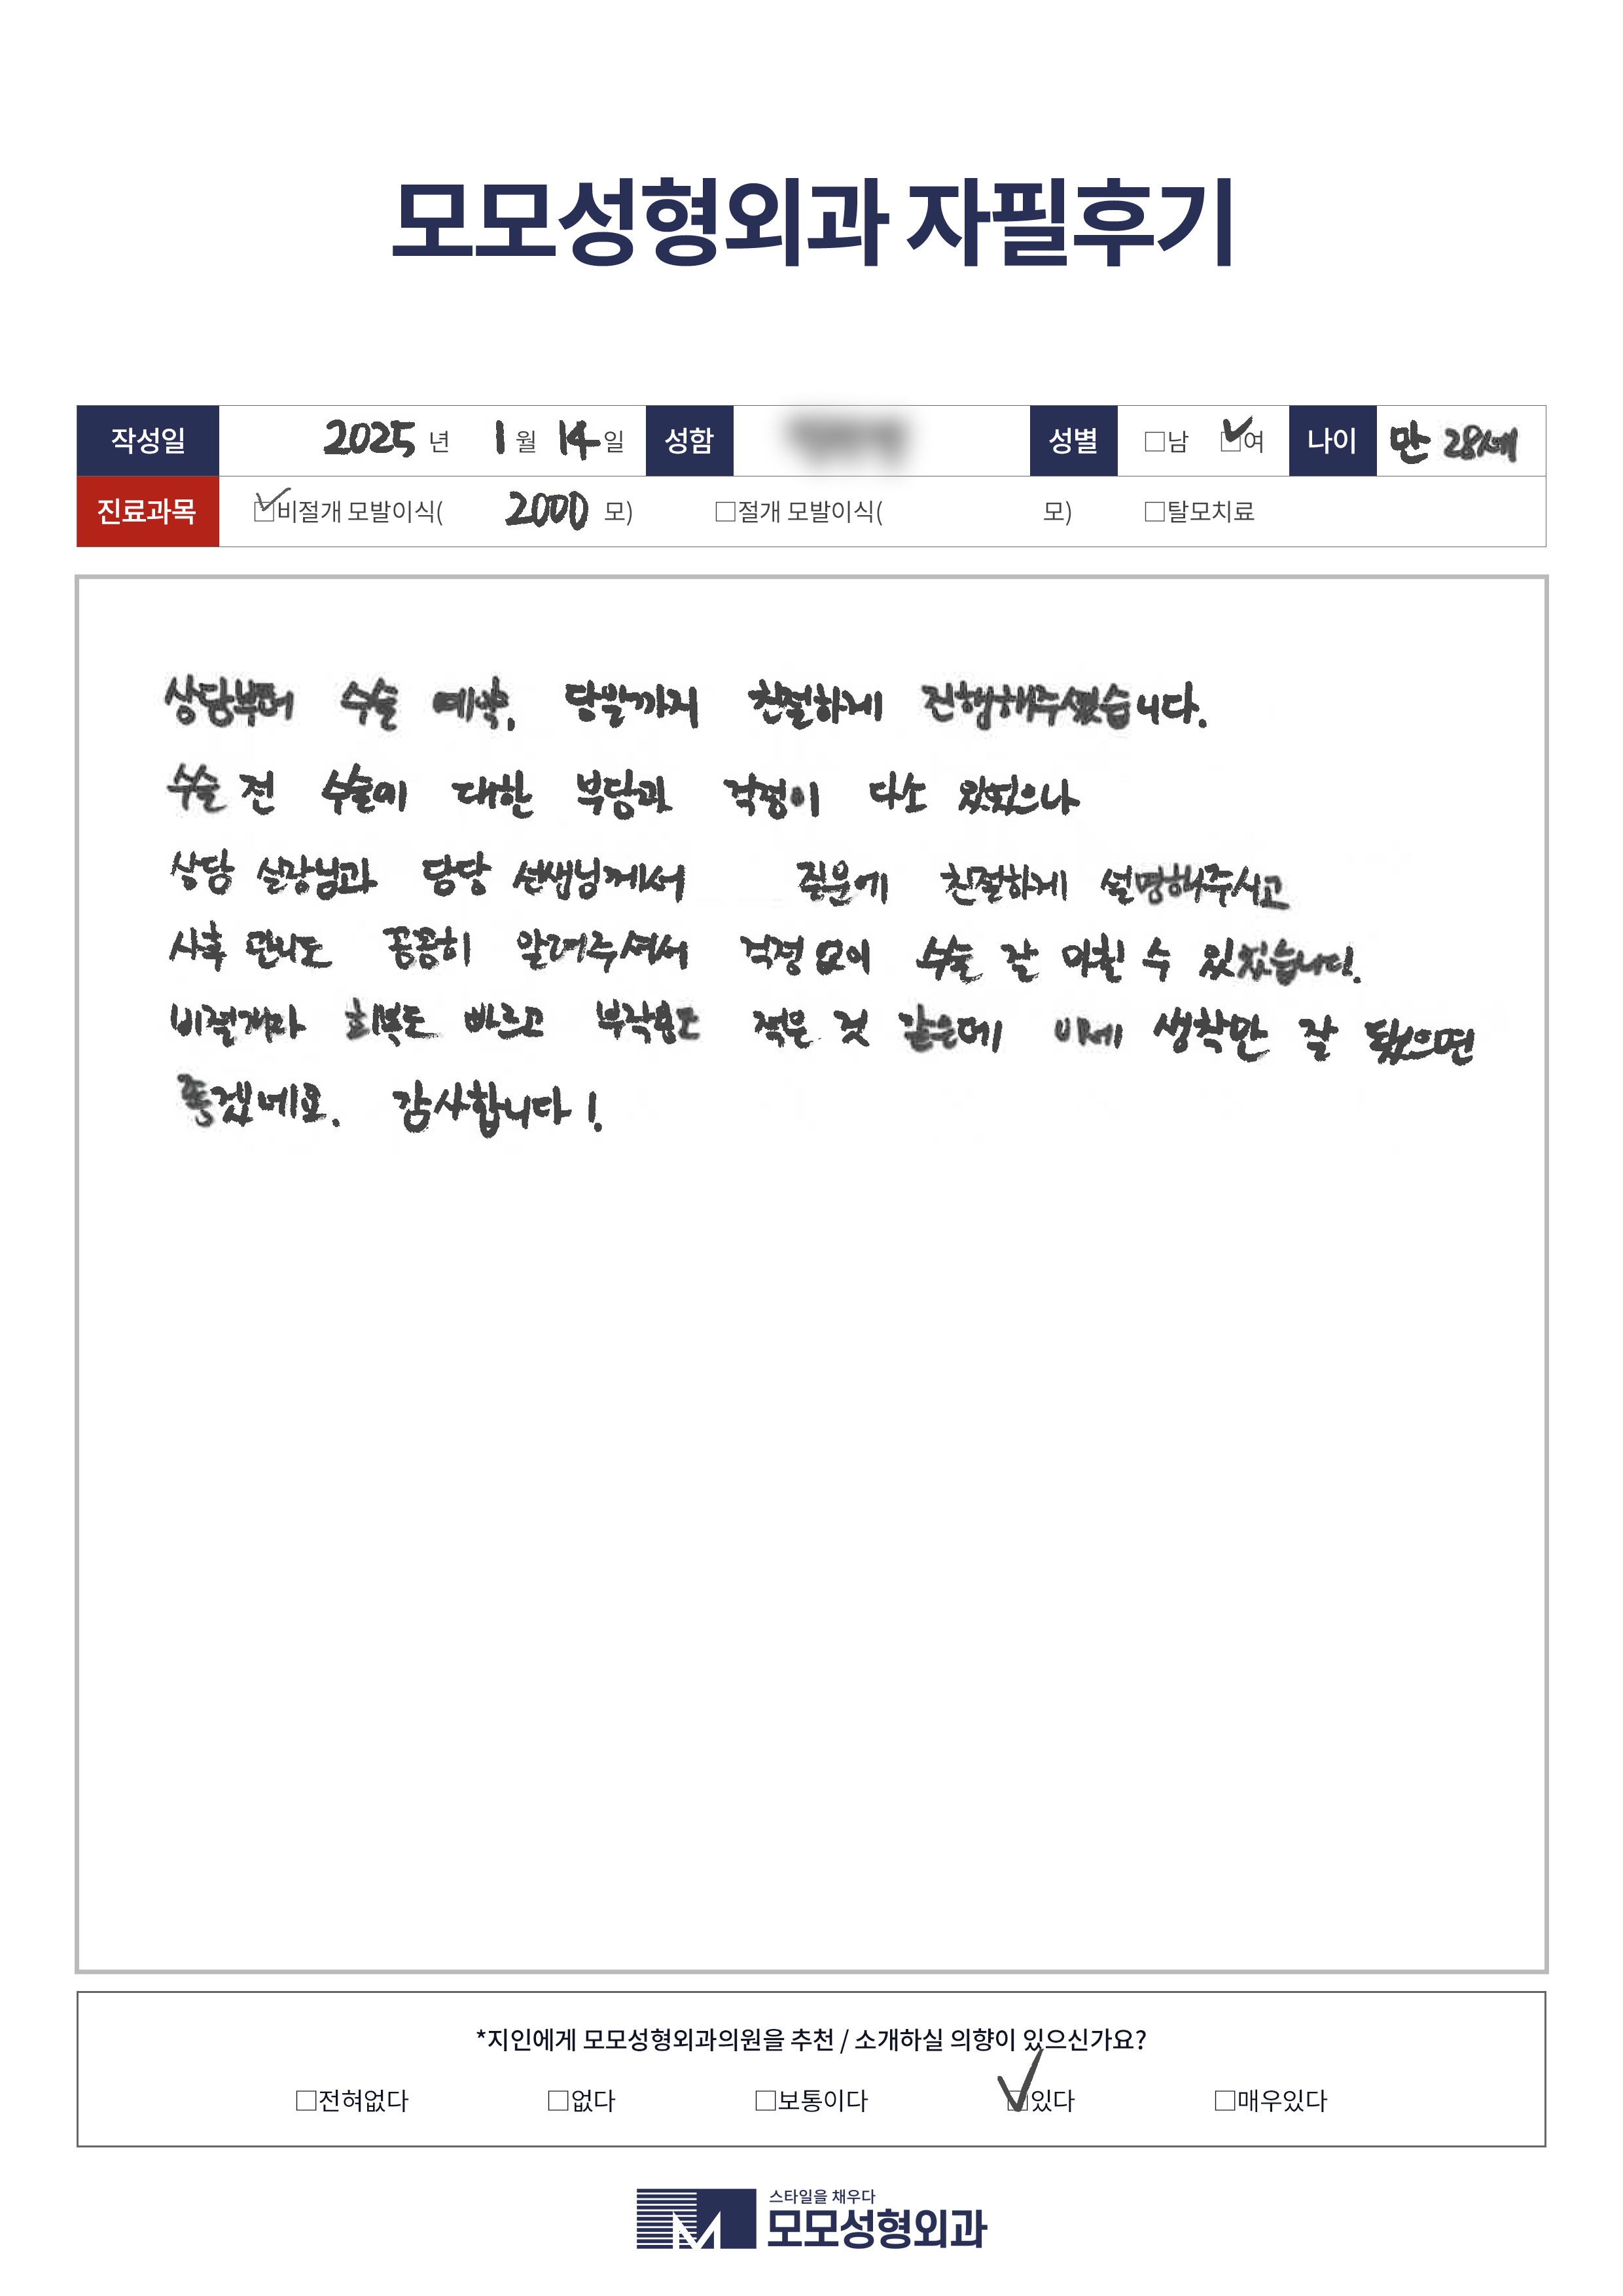 모모성형외과 자필후기
작성일 2025 년 1 월 14 일 성함 성별 □남 ☑여 나이 만 28세
진료과목 ☑비절개 모발이식( 2000 모) □절개 모발이식( 모) □탈모치료
상담부터 수술 예약, 당일까지 친절하게 진행해주셨습니다.
수술 전 수술에 대한 부담과 걱정이 다소 있었으나
상담 실장님과 담당 선생님께서 질문에 친절하게 설명해주시고
사후 관리도 꼼꼼히 알려주셔서 걱정 없이 수술 잘 마칠 수 있었습니다.
비절개라 회복도 빠르고 부작용도 적은 것 같은데 이제 생착만 잘 됐으면
좋겠네요. 감사합니다!
*지인에게 모모성형외과의원을 추천 / 소개하실 의향이 있으신가요?
□전혀없다 □없다 □보통이다 ☑있다 □매우있다
스타일을 채우다
모모성형외과